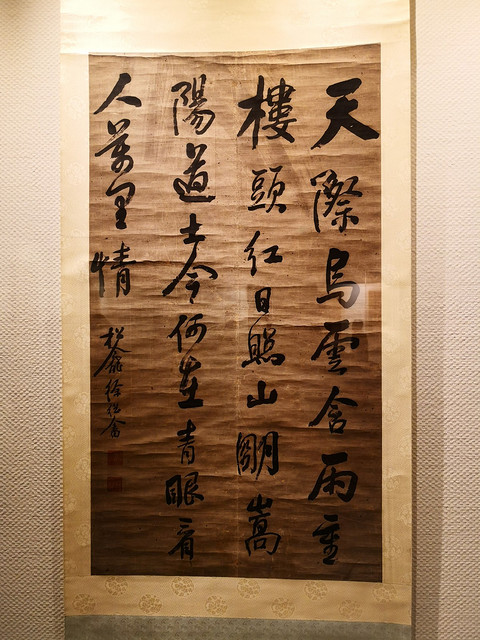 天際烏雲含雨重
樓頭紅日照山朙嵩
陽道士今何在青眼看
人萬里情
松龕徐繼畬